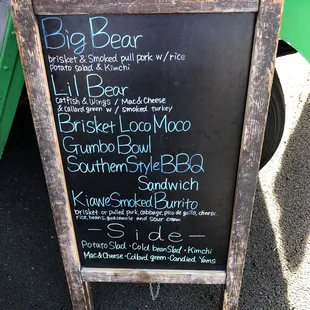 Big Bear
brisket & Smoked pull pork w/rice
potato salad & Kimchi
Lil Bear
Catfish & Wings / Mac&Cheese
& Collard green w/ smoked turkey
Brisket Loco Moco
Gumbo Bowl
Southern Style BBQ
Sandwich
Kiawe Smoked Burrito
brisket or pulled pork, cabbage, pico de gallo, cheese,
rice, beans, guacamole and sour cream
-Side-
Potato Slad · Cold bean Slad · Kimchi
Mac&Cheese · Collard green · Candied Yams